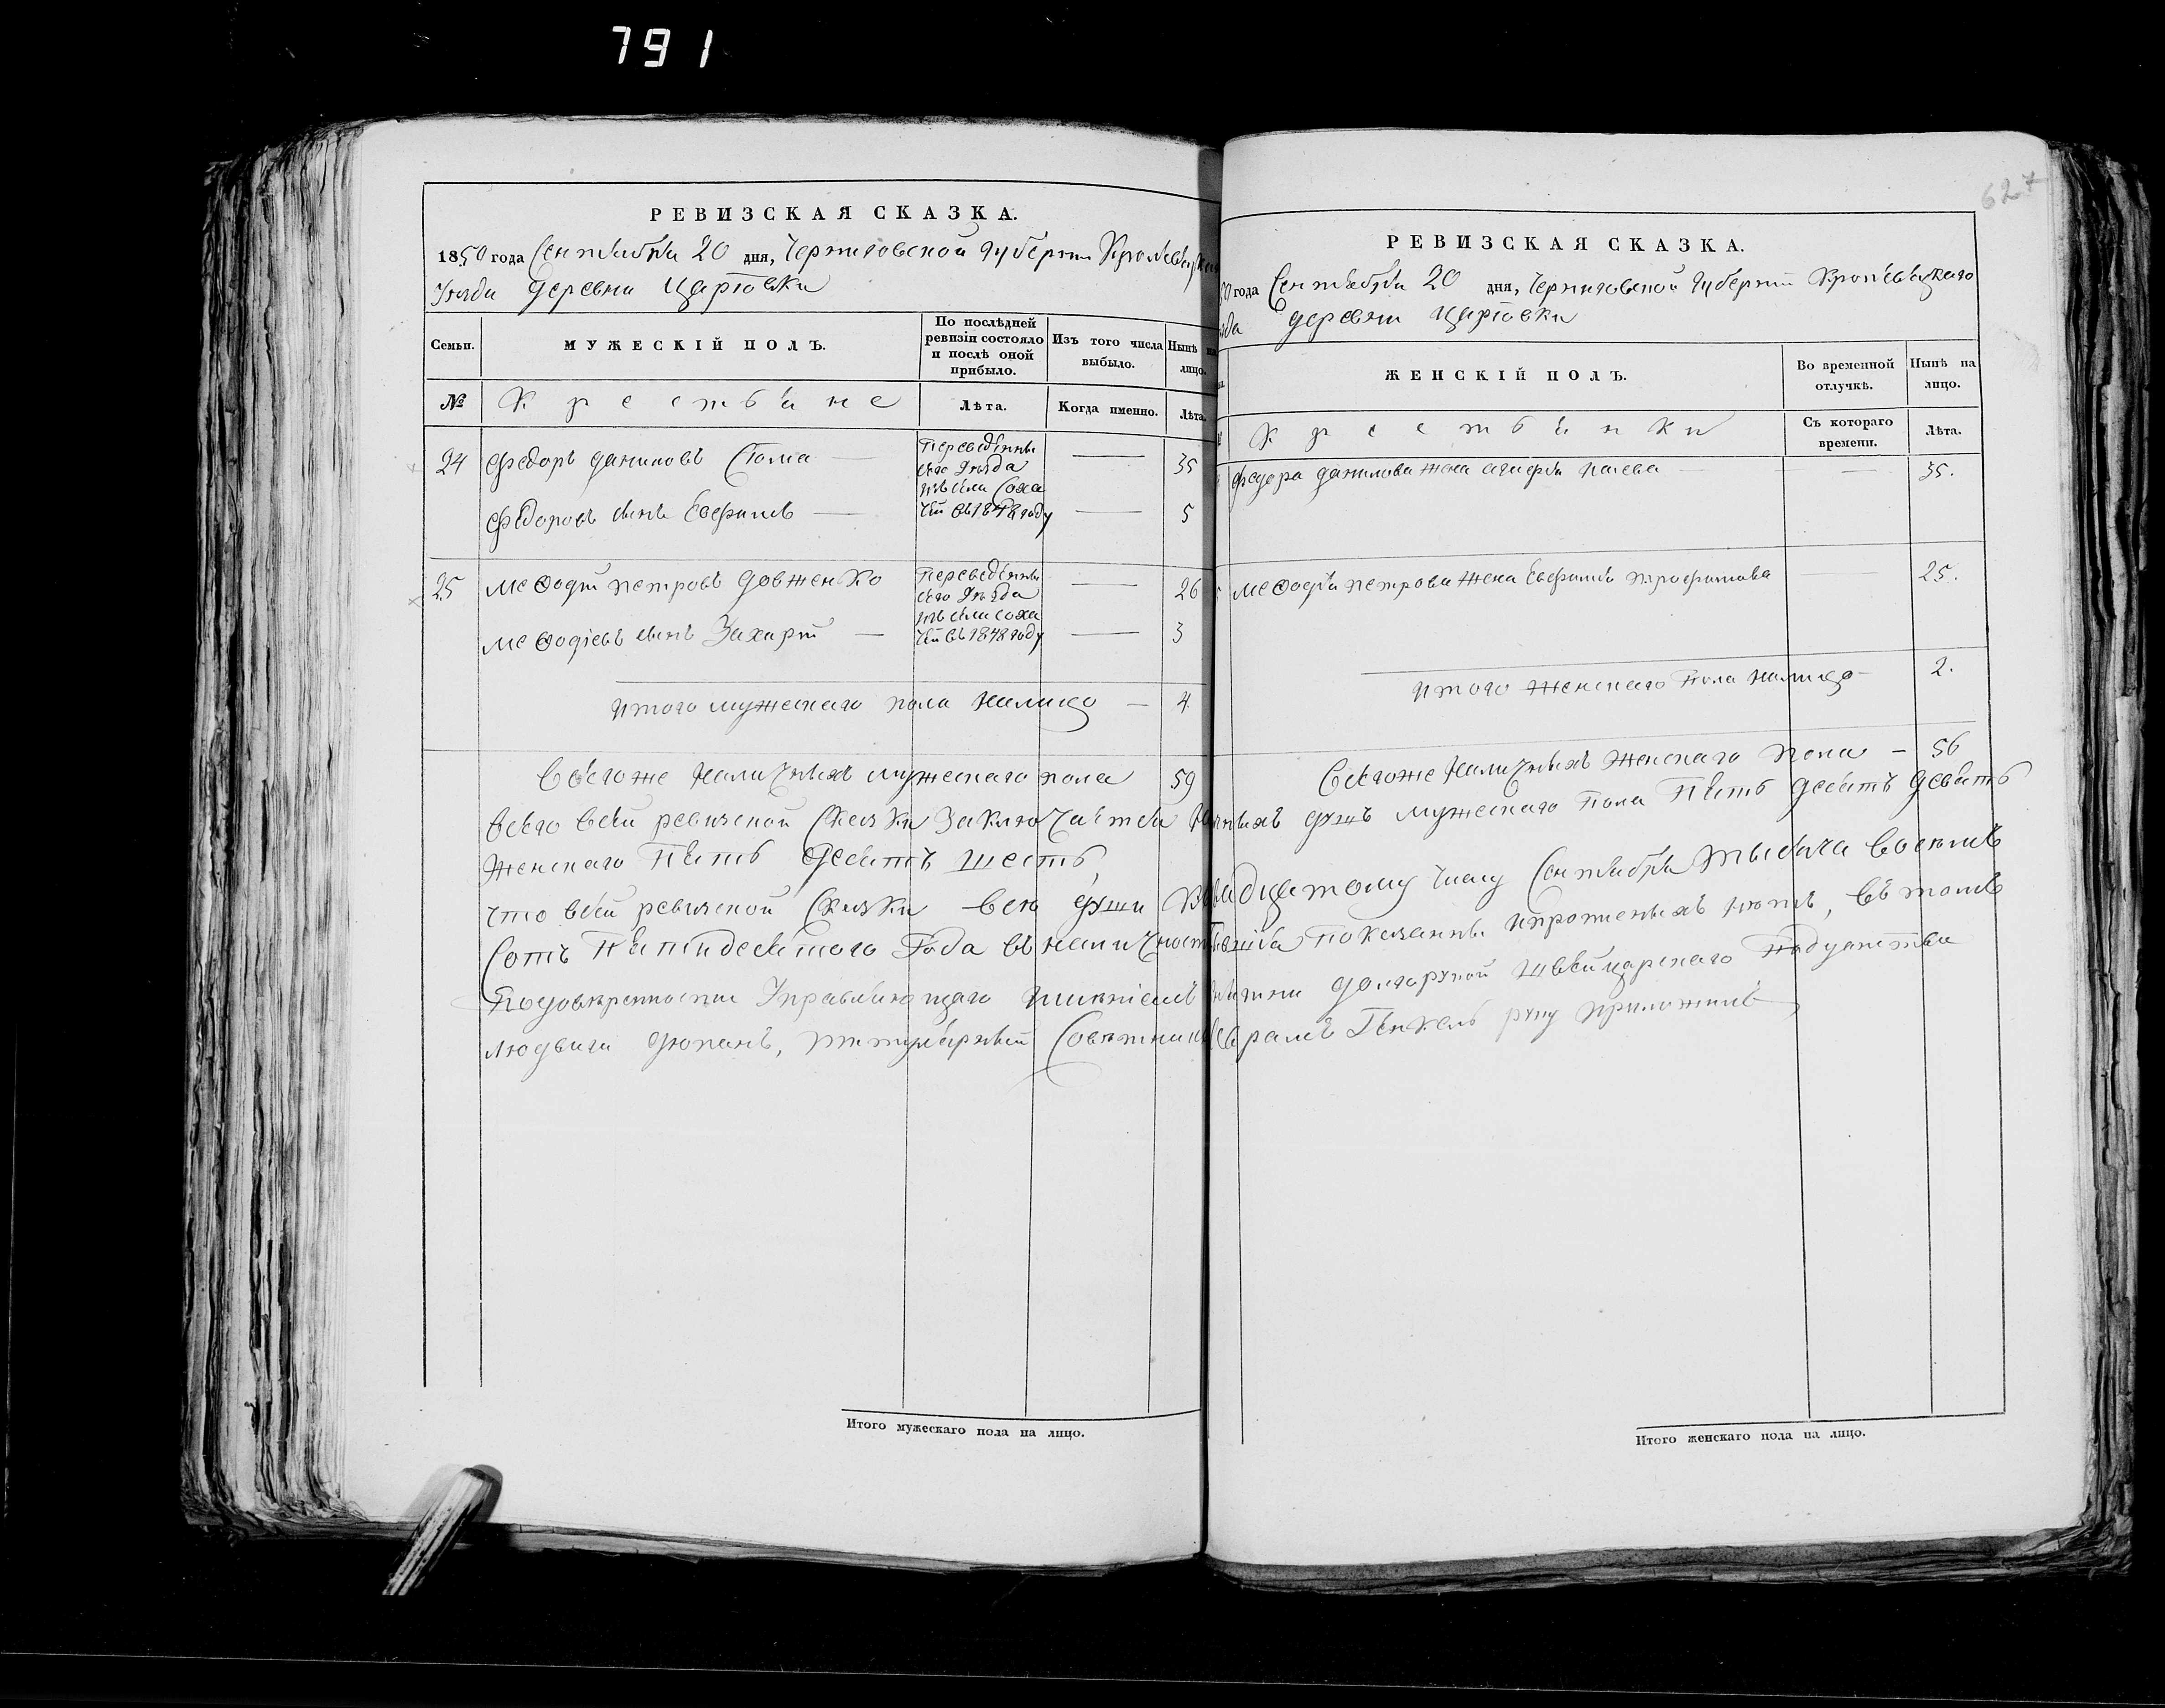 791
627
РЕВИЗСКАЯ СКАЗКА.
1850 года Сентября 20 дня, Черниговской Губернии Кролевецкаго
Уезда деревни Царговки
Семьи.
МУЖЕСКІЙ ПОЛЪ.
По послѣдней ревизіи состояло и послѣ оной прибыло.
Изъ того числа выбыло.
Нынѣ на лицо.
№
Крестьяне
Лѣта.
Когда именно.
Лѣта.
24 Федоръ Даниловъ — Переведены сего Уезда изъ села в 1848 году — 35
Федоровъ сынъ Евфимъ — — 5
25 Меѳодій Петровъ Довженко Переведены сего Уезда изъ села в 1848 году — 26
Меѳодіевъ сынъ Захарій — — 3
Итого мужескаго пола налицо — 4
Всегоже наличныхъ мужескаго пола 59
РЕВИЗСКАЯ СКАЗКА.
50 года Сентября 20 дня, Черниговской Губерніи Кролевецкаго
деревни Царговки
ЖЕНСКІЙ ПОЛЪ.
Во временной отлучкѣ.
Нынѣ на лицо.
Крестьянки
Съ котораго времени.
Лѣта.
Федора Данилова жена — 35.
Меѳодія Петрова жена Евфимія Трофимова — 25.
Итого женскаго пола налицо — 2.
Всегоже наличныхъ женскаго пола — 56
Всего в сей ревизской сказки заключается душъ мужескаго пола пять десятъ девять
женскаго пять десятъ шесть,
что в сей ревизской сказки все души двадцатому числу Сентября тысяча восемь
сотъ пятидесятого года въ наличности показаны и пропененыхъ нетъ, въ томъ
По доверенности Управляющаго имениемъ Долгорукой Швейцарскаго подданства
Людвига Дюпанъ, титулярный Советникъ руку приложилъ
Итого мужескаго пола на лицо.
Итого женскаго пола на лицо.